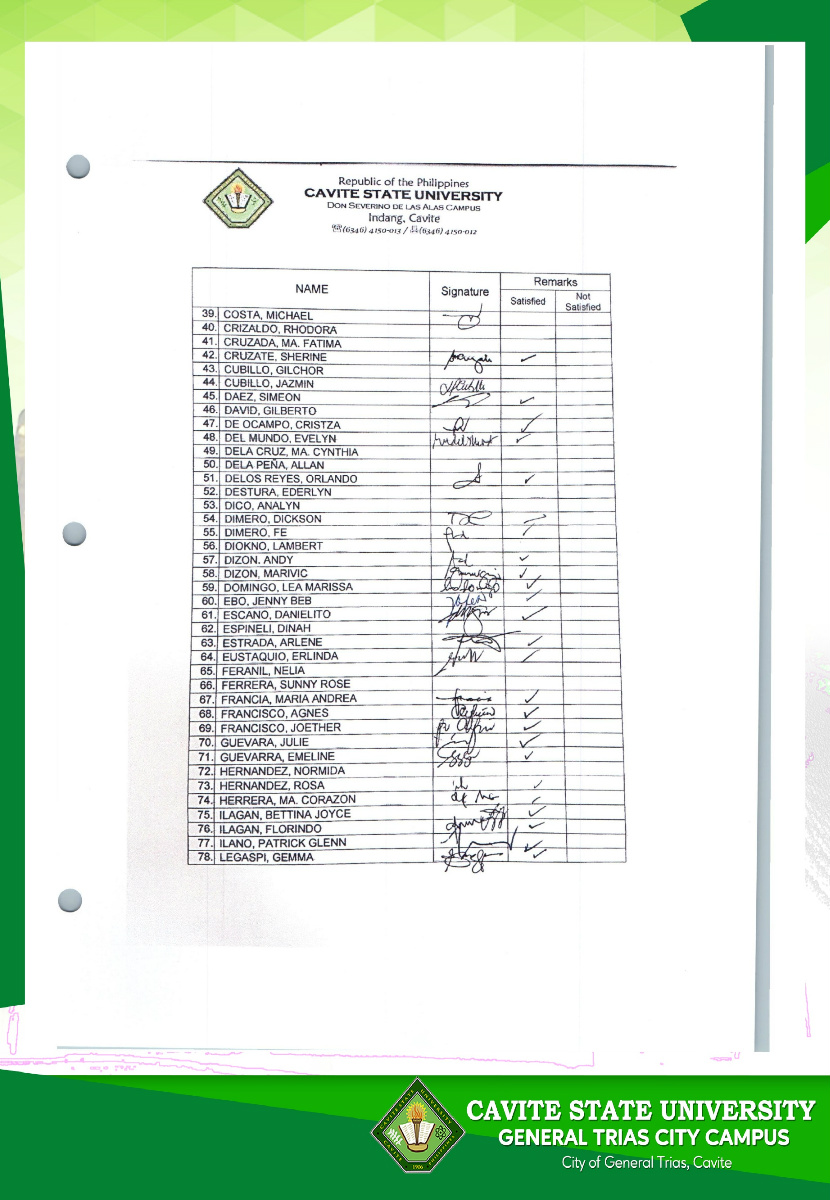 Republic of the Philippines
CAVITE STATE UNIVERSITY
DON SEVERINO DE LAS ALAS CAMPUS
Indang, Cavite
(6346) 4150-013 / (6346) 4150-012
NAME Signature Remarks
Satisfied Not Satisfied
39. COSTA, MICHAEL
40. CRIZALDO, RHODORA
41. CRUZADA, MA. FATIMA
42. CRUZATE, SHERINE
43. CUBILLO, GILCHOR
44. CUBILLO, JAZMIN
45. DAEZ, SIMEON
46. DAVID, GILBERTO
47. DE OCAMPO, CRISTZA
48. DEL MUNDO, EVELYN
49. DELA CRUZ, MA. CYNTHIA
50. DELA PEÑA, ALLAN
51. DELOS REYES, ORLANDO
52. DESTURA, EDERLYN
53. DICO, ANALYN
54. DIMERO, DICKSON
55. DIMERO, FE
56. DIOKNO, LAMBERT
57. DIZON. ANDY
58. DIZON, MARIVIC
59. DOMINGO, LEA MARISSA
60. EBO, JENNY BEB
61. ESCANO, DANIELITO
62. ESPINELI, DINAH
63. ESTRADA, ARLENE
64. EUSTAQUIO, ERLINDA
65. FERANIL, NELIA
66. FERRERA, SUNNY ROSE
67. FRANCIA, MARIA ANDREA
68. FRANCISCO, AGNES
69. FRANCISCO, JOETHER
70. GUEVARA, JULIE
71. GUEVARRA, EMELINE
72. HERNANDEZ, NORMIDA
73. HERNANDEZ, ROSA
74. HERRERA, MA. CORAZON
75. ILAGAN, BETTINA JOYCE
76. ILAGAN, FLORINDO
77. ILANO, PATRICK GLENN
78. LEGASPI, GEMMA
CAVITE STATE UNIVERSITY
GENERAL TRIAS CITY CAMPUS
City of General Trias, Cavite